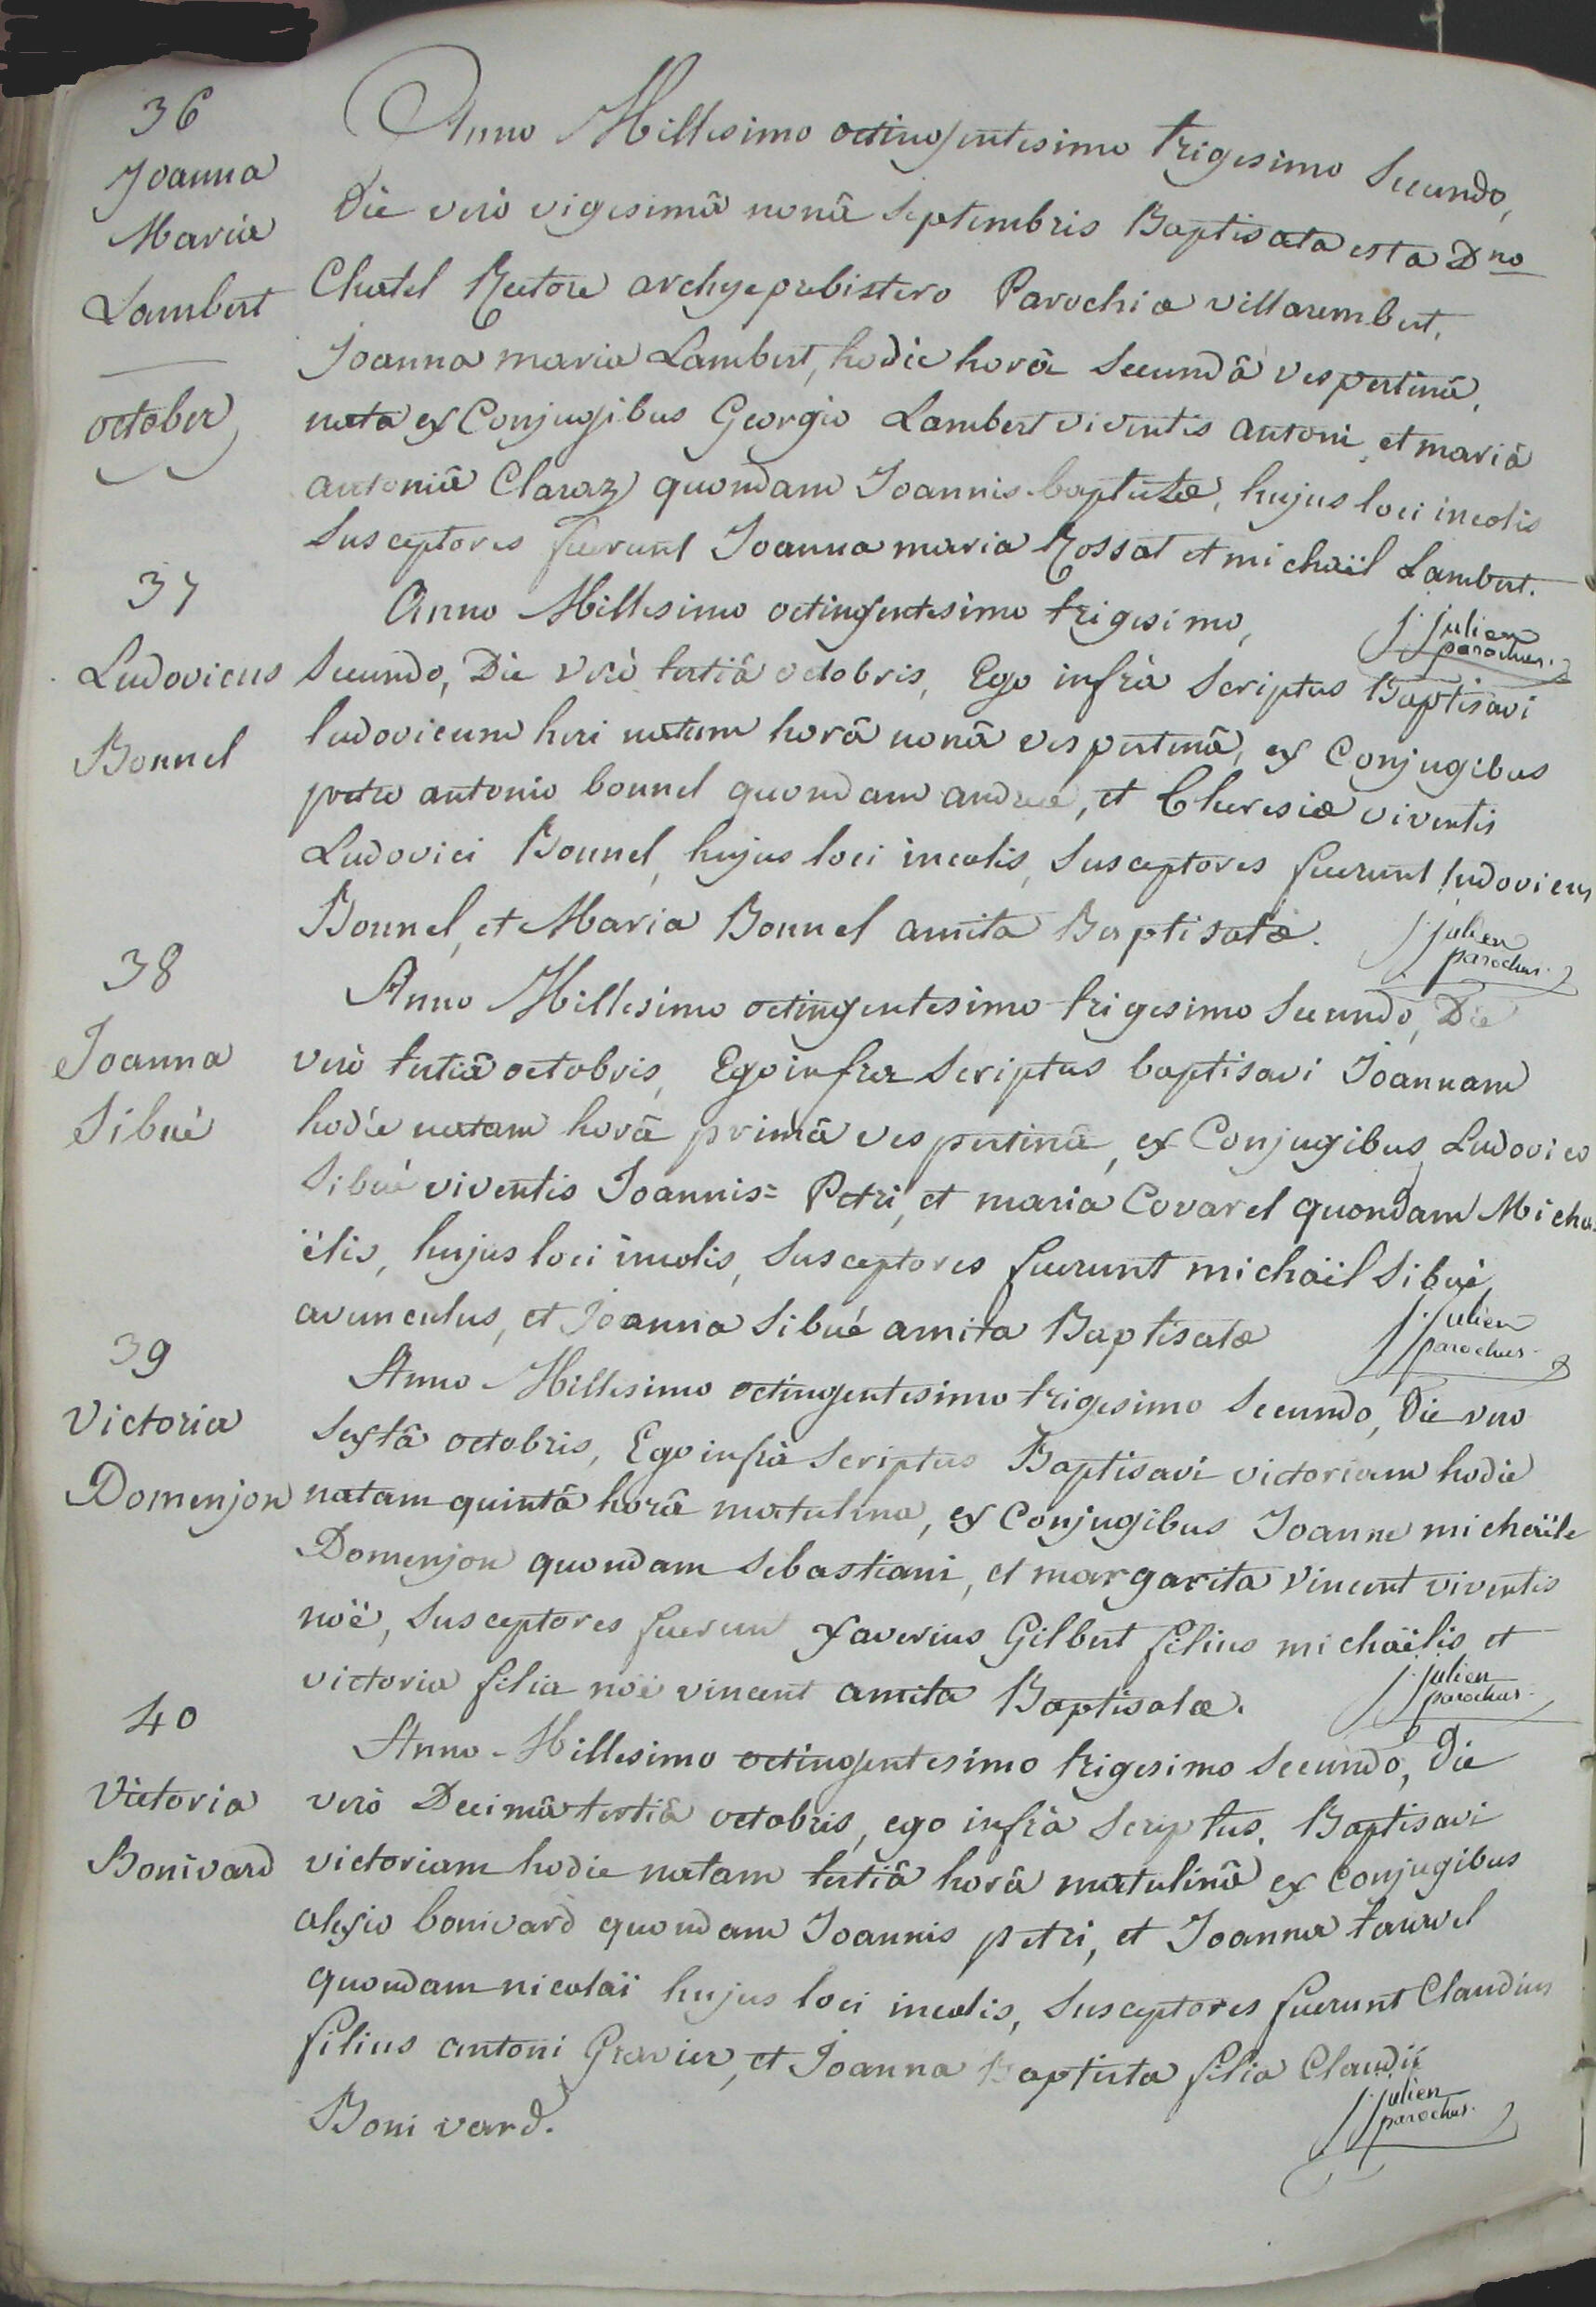 36
Joanna
Maria
Lambert
october
Anno Millesimo octingentesimo trigesimo Secundo,
Die verò vigesimâ nonâ Septembris Baptisata est a Dno
Chatel Rectore archyeprebistero Parochia villarembert,
Joanna maria Lambert, hodie horâ Secundâ vespertinâ,
nata ex Conjugibus Georgio Lambert viventis antoni et mariâ
antoniâ Claraz quondam Joannis-baptistæ, hujus loci incolis
Susceptores fuerunt Joanna maria Rossat et michaël Lambert.
j. julien
parochus.
37
Ludovicus
Bonnel
Anno Millesimo octingentesimo trigesimo,
Secundo, Die verò tertiâ octobris, Ego infrà Scriptus Baptisavi
ludovicum heri natum horâ nonâ vespertinâ, ex Conjugibus
petro antonio bonnel quondam andreæ, et Theresiæ viventis
Ludovici Bonnel, hujus loci incolis, Susceptores fuerunt ludovicus
Bonnel, et Maria Bonnel amita Baptisatæ.
j. julien
parochus.
38
Joanna
Sibué
Anno Millesimo octingentesimo trigesimo Secundo, Die
verò tertiâ octobris, Ego infra Scriptus baptisavi Joannam
hodie natam horâ primâ vespertinâ, ex Conjugibus Ludovico
Sibué viventis Joannis= Petri, et maria Covarel quondam Micha=
ëlis, hujus loci incolis, Susceptores fuerunt michaël Sibué,
avunculus, et Joanna Sibué amita Baptisatæ
j. julien
parochus.
39
Victoria
Domenjon
Anno Millesimo octingentesimo trigesimo Secundo, Die vero
Sextâ octobris, Ego infrà Scriptus Baptisavi victoriam hodie
natam quintâ horâ matutina, ex Conjugibus Joanne michaële
Domenjon quondam Sebastiani, et margarita Vincent viventis
noë, Susceptores fuerunt xaverius Gilbert filius michaëlis et
victoria filia noë vincent amita Baptisatæ.
j. julien
parochus.
40
Victoria
Bonivard
Anno Millesimo octingentesimo trigesimo Secundo, Die
verò Decimâ tertiâ octobris, ego infrà Scriptus, Baptisavi
victoriam hodie natam tertiâ horâ matutinâ ex Conjugibus
alexio bonivard quondam Joannis petri, et Joanna taravel
quondam nicolaï hujus loci incolis, Susceptores fuerunt Claudius
filius antoni Gravier, et Joanna Baptista filia Claudii
Bonivard.
j. julien
parochus.